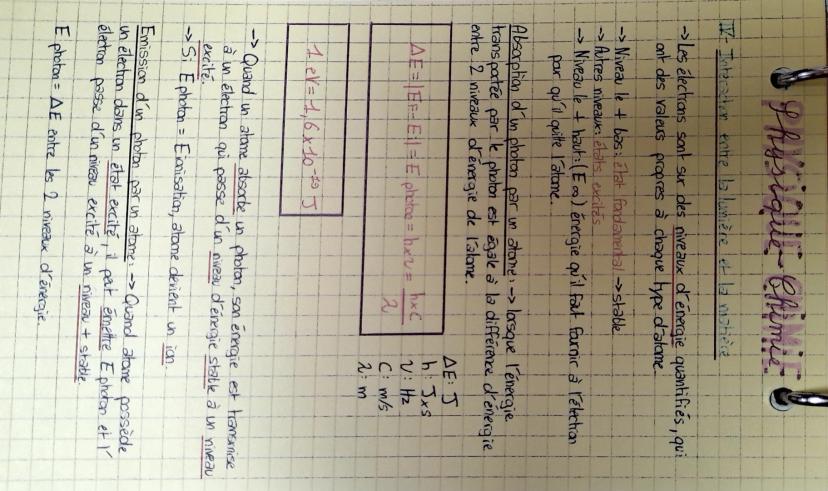 PHYSIQUE-CHIMIE
Physique-Chimie
IV. Interaction entre la lumière et la matière
-> Les électrons sont sur des niveaux d'énergie quantifiés, qui
ont des valeurs propres à chaque type d'atome.
-> Niveau le + bas: état fondamental -> stable
-> Autres niveaux: états excités
-> Niveau le + haut: (E∞) énergie qu'il faut fournir à l'électron
par qu'il quitte l'atome.
Absorption d'un photon par un atome: -> lorsque l'énergie
transportée par le photon est égale à la différence d'énergie
entre 2 niveaux d'énergie de l'atome.
ΔE = |Ef - Ei| = E photon = h×ν = h×c / λ
ΔE: J
h: J×s
ν: Hz
C: m/s
λ: m
1 eV = 1,6×10⁻¹⁹ J
-> Quand un atome absorbe un photon, son énergie est transmise
à un électron qui passe d'un niveau d'énergie stable à un niveau
excité.
-> Si E photon = E ionisation, atome devient un ion.
Emission d'un photon par un atome: -> Quand atome possède
un électron dans un état excité, il peut émettre E photon et l'
électron passe d'un niveau excité à un niveau + stable.
E photon = ΔE entre les 2 niveaux d'énergie.